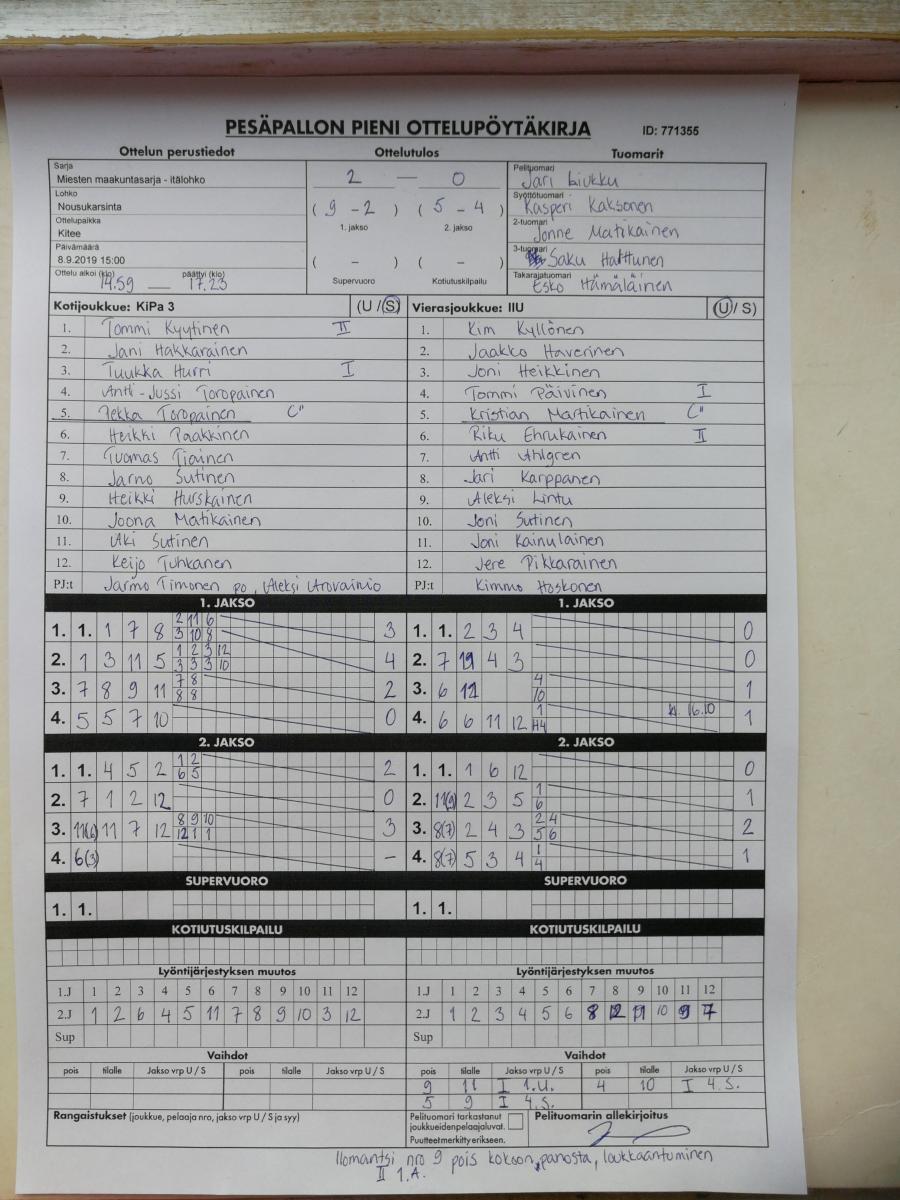 PESÄPALLON PIENI OTTELUPÖYTÄKIRJA ID: 771355
Ottelun perustiedot Ottelutulos Tuomarit
Sarja
Miesten maakuntasarja - itälohko
Lohko
Nousukarsinta
Ottelupaikka
Kitee
Päivämäärä
8.9.2019 15:00
Ottelu alkoi (klo) päättyi (klo)
14.59 — 17.23
2 — 0
( 9 - 2 ) ( 5 - 4 )
1. jakso 2. jakso
( - ) ( - )
Supervuoro Kotiutuskilpailu
Pelituomari
Jari Liukku
Syöttötuomari
Kasperi Kaksonen
2-tuomari
Jonne Matikainen
3-tuomari
Saku Halttunen
Takarajatuomari
Esko Hämäläinen
Kotijoukkue: KiPa 3 (U / S)
1. Tommi Kyytinen II
2. Jani Hakkarainen
3. Tuukka Hurri I
4. Antti-Jussi Toropainen
5. Pekka Toropainen C"
6. Heikki Paakkinen
7. Tuomas Tiainen
8. Jarno Sutinen
9. Heikki Hurskainen
10. Joona Matikainen
11. Aki Sutinen
12. Keijo Tuhkanen
PJ:t Jarmo Timonen po, Aleksi Arovainio
Vierasjoukkue: IIU (U / S)
1. Kim Kyllönen
2. Jaakko Haverinen
3. Joni Heikkinen
4. Tommi Päivinen I
5. Kristian Martikainen C"
6. Riku Ehrukainen II
7. Antti Ahlgren
8. Jari Karppanen
9. Aleksi Lintu
10. Joni Sutinen
11. Joni Kainulainen
12. Jere Pikkarainen
PJ:t Kimmo Hoskonen
1. JAKSO
1. 1. 1 7 8 2 11 6 3
3 10 8
2. 1 3 11 5 1 2 3 12 4
3 3 3 10
3. 7 8 9 11 7 8 2
8 8
4. 5 5 7 10 0
1. JAKSO
1. 1. 2 3 4 0
2. 7 4 3 0
3. 6 12 4 1
10
4. 6 6 11 12 1 kl. 16.10 1
H4
2. JAKSO
1. 1. 4 5 2 1 2 2
6 5
2. 7 1 2 12 0
3. 11(6) 11 7 12 8 9 10 3
12 1 1
4. 6(3) –
2. JAKSO
1. 1. 1 6 12 0
2. 11(9) 2 3 5 1 1
6
3. 8(7) 2 4 3 2 4 2
5 6
4. 8(7) 5 3 4 1 1
4
SUPERVUORO
1. 1.
SUPERVUORO
1. 1.
KOTIUTUSKILPAILU
KOTIUTUSKILPAILU
Lyöntijärjestyksen muutos
1.J 1 2 3 4 5 6 7 8 9 10 11 12
2.J 1 2 6 4 5 11 7 8 9 10 3 12
Sup
Lyöntijärjestyksen muutos
1.J 1 2 3 4 5 6 7 8 9 10 11 12
2.J 1 2 3 4 5 6 8 12 11 10 9 7
Sup
Vaihdot
pois tilalle Jakso vrp U / S pois tilalle Jakso vrp U / S
Vaihdot
pois tilalle Jakso vrp U / S pois tilalle Jakso vrp U / S
9 11 I 1.U. 4 10 I 4.S.
5 9 I 4.S.
Rangaistukset (joukkue, pelaaja nro, jakso vrp U / S ja syy)
Pelituomari tarkastanut
joukkueiden pelaajaluvat.
Puutteet merkitty erikseen.
Pelituomarin allekirjoitus
Ilomantsi nro 9 pois kokoonpanosta, loukkaantuminen
II 1.A.